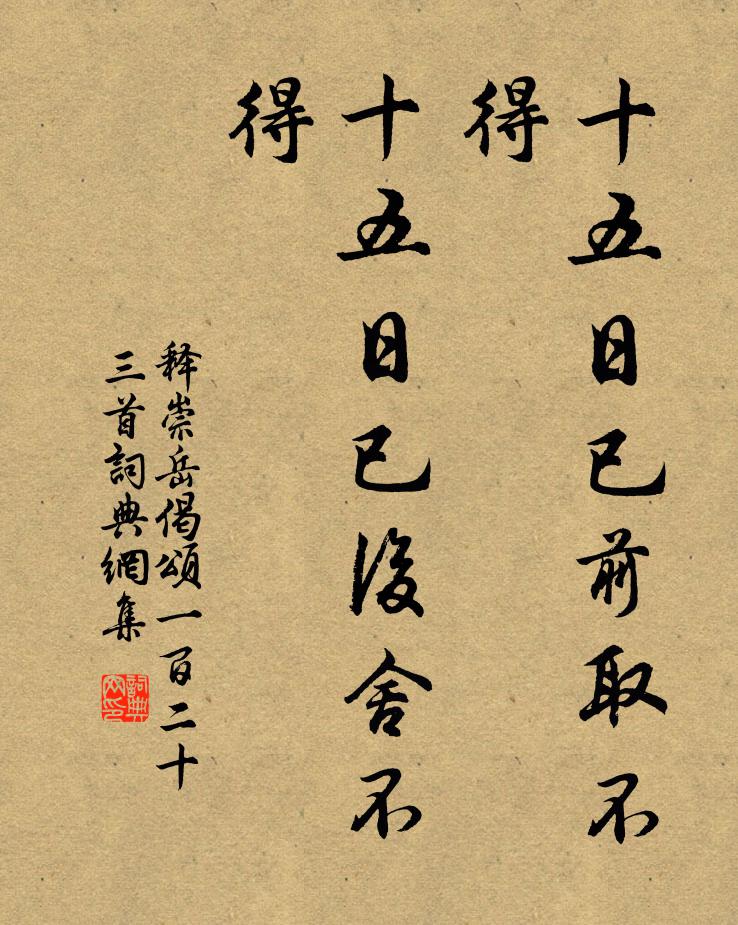 十五日已前取不
得
十五日已後舍不
得
释崇岳偈頌一百二十
三首詞典網集
詞典
网印